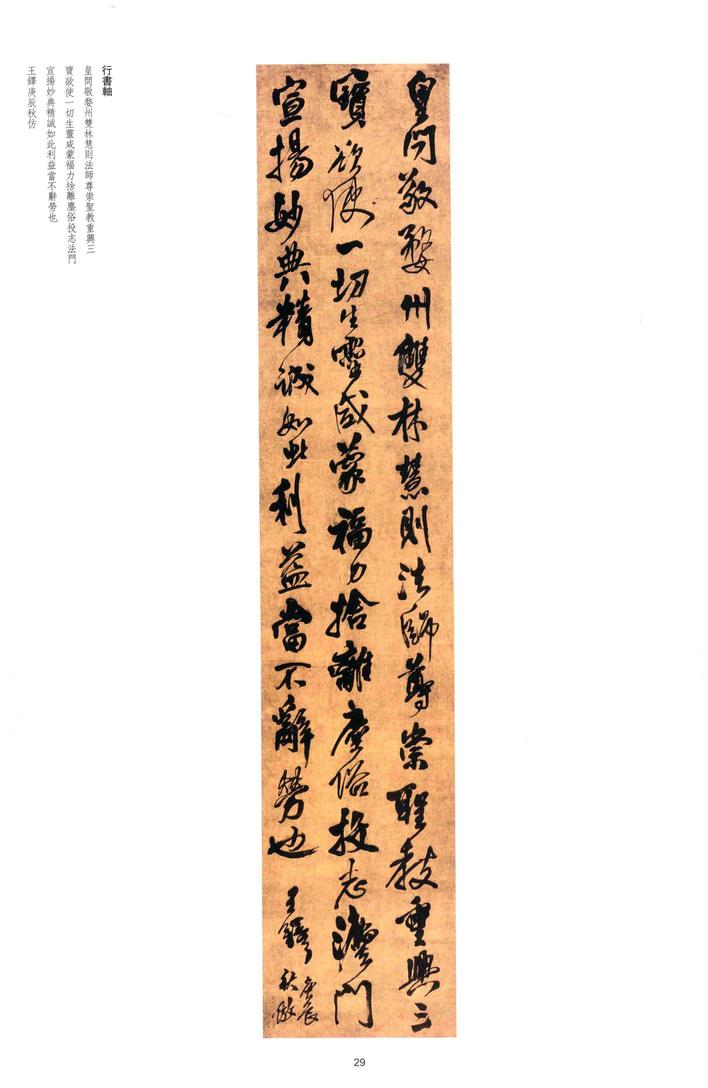 皇問敬婺州雙林慧則法師尊崇聖教重興三
寶欲使一切生靈咸蒙福力捨離塵俗投志法門
宣揚妙典精誠如此利益當不辭勞也
王鐸
庚辰
秋倣
行書軸
皇問敬婺州雙林慧則法師尊崇聖教重興三
寶欲使一切生靈咸蒙福力捨離塵俗投志法門
宣揚妙典精誠如此利益當不辭勞也
王鐸庚辰秋仿
29